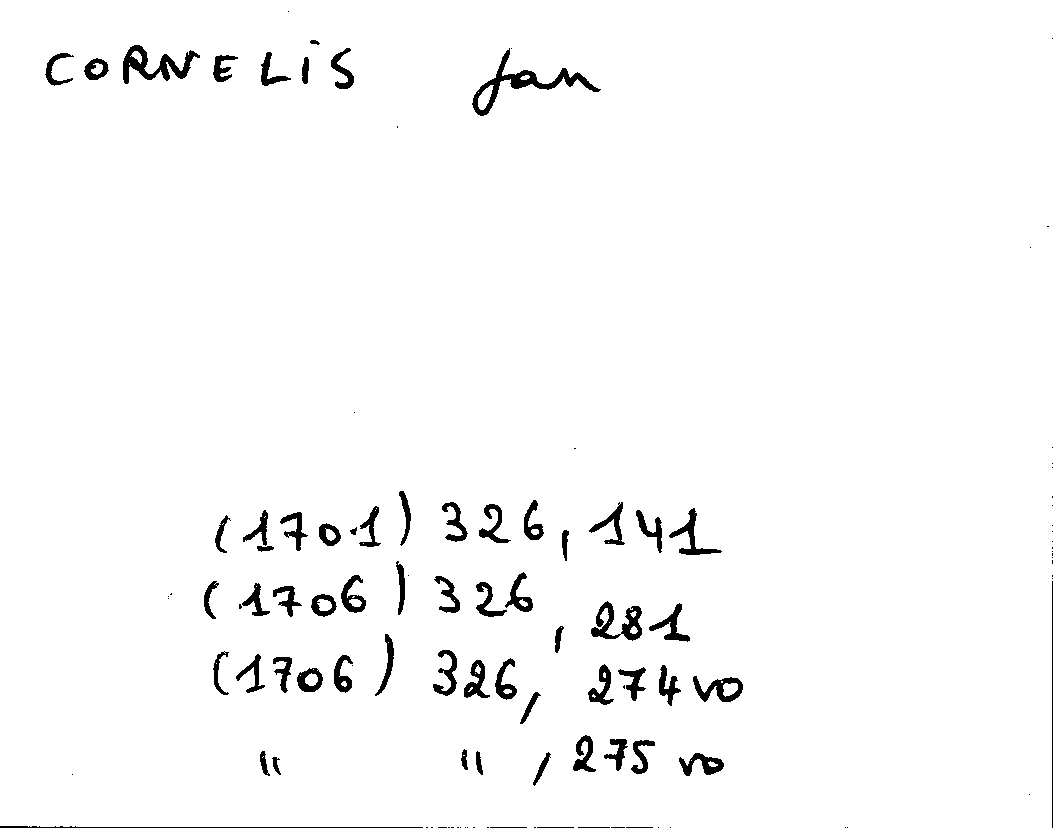 CORNELIS Jan
(1701) 326, 141
(1706) 326, 281
(1706) 326, 274 vo
" " , 275 vo